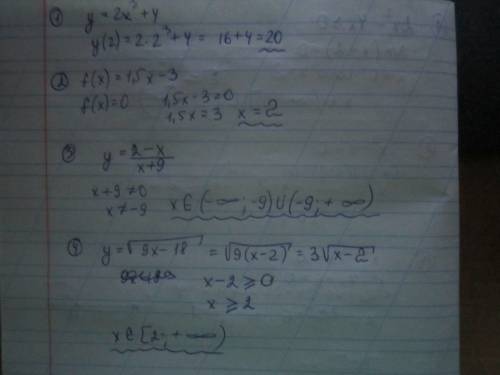 ① y = 2x³ + 4
y(2) = 2·2³ + 4 = 16 + 4 = 20
② f(x) = 1,5x - 3
f(x) = 0 1,5x - 3 = 0
1,5x = 3 x = 2
③ y = (2-x)/(x+9)
x+9 ≠ 0
x ≠ -9 x ∈ (-∞; -9) ∪ (-9; +∞)
④ y = √(9x - 18) = √(9(x-2)) = 3√(x-2)
x - 2 ≥ 0
x ≥ 2
x ∈ [2; +∞)